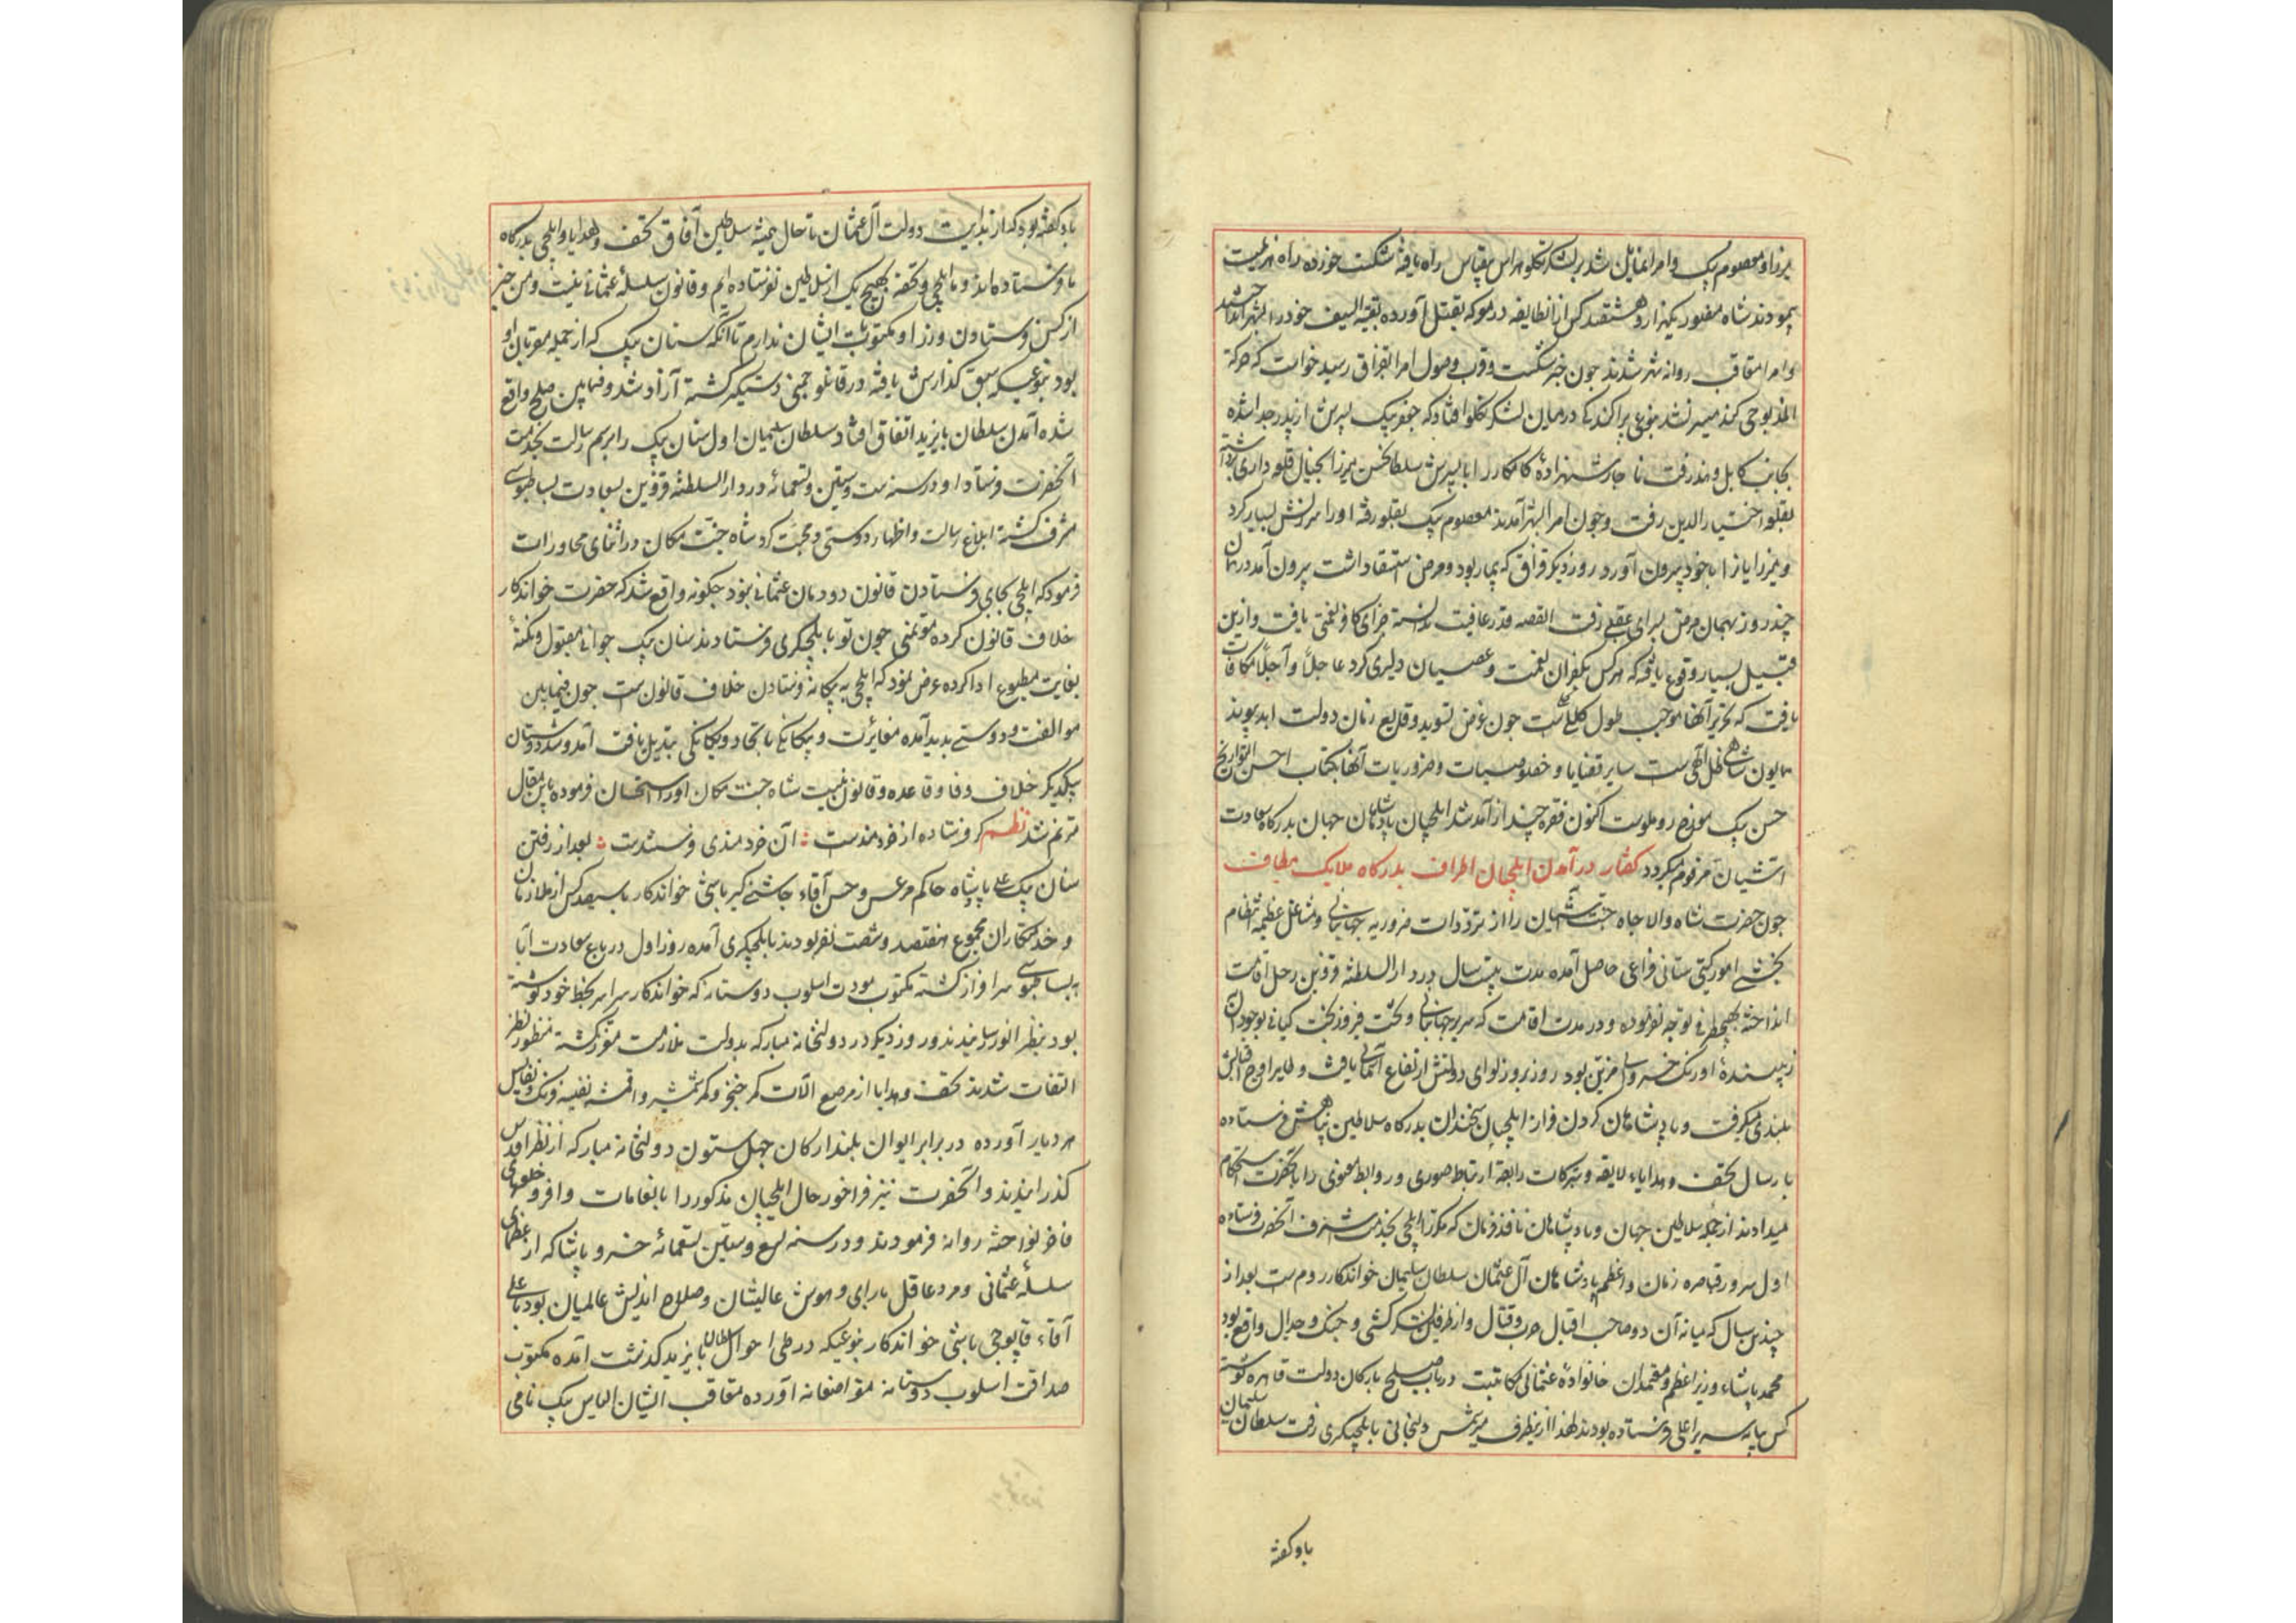 میرزا و معصوم بیک و امرا نمایان شد بر لشکر تکلو هراس بیقیاس راه یافته شکست خورده راه هزیمت
پیمودند شاه مغبور یکهزار و هشتصد کس از آن طایفه در معرکه بقتل آورده بقیة السیف خود را بشهر انداختند
و امرا متعاقب روانه شهر شدند چون خبر شکست و قرب وصول امرا بقزاق رسید خواست که حرکة
المذبوحی کند میسر نشد بنوعی پراکندگی در میان لشکر تکلو افتاد که جعفر بیک پسرش از پدر جدا شده
بجانب کابل و هند رفت ناچار شهزاده کامکار را با پسرش سلطانحسن میرزا بخیال قلعه داری برداشته
بقلعه اختیار الدین رفت و چون امرا بشهر آمدند معصوم بیک بقلعه رفته او را سرزنش بسیار کرد
و میرزایان را با خود بیرون آورد روز دیگر قزاق که بیمار بود و مرض استسقا داشت بیرون آمد در همان
چند روز بهمان مرض بسرای عقبی رفت القصه قدر عافیت ندانسته جزای کافر نعمتی یافت و ازین
قبیل بسیار وقوع یافته که هر کس بکفران نعمت و عصیان دلیری کرد عاجلاً و آجلاً مکافات
یافت که تحریر آنها موجب طول کلام است چون غرض تسوید وقایع زمان دولت ابد پیوند
همایون شاهی ظل اللهی ست سایر قضایا و خصوصیات و ضروریات آنها بکتاب احسن التواریخ
حسن بیک مورخ روملوست اکنون فقره چند از آمد شد ایلچیان پادشاهان جهان بدرگاه سعادت
آشیان مرقوم میگردد گفتار در آمدن ایلچیان اطراف بدرگاه ملایک مطاف
چون حضرت شاه والا جاه جنت آشیان را از ترددات ضروریه جهانبانی و مشاغل عظیمه انتظام
بخشی امور گیتی ستانی فراغی حاصل آمده مدت بیست سال در دار السلطنه قزوین رحل اقامت
انداخته بهیچطرفی توجه نفرموده و در مدت اقامت که سریر جهانبانی و تخت فیروزبخت کیانی بوجود آن
زیبنده اورنگ خسروانی مزین بود روز بروز لوای دولتش ارتفاع آسمانی یافت و طایر اوج اقبالش
بلندی میگرفت و پادشاهان گردن فراز ایلچیان سخندان بدرگاه سلاطین پناهش فرستاده
بارسال تحف و هدایاء لایقه و تبرکات رابطه ارتباط صوری و روابط معنوی را با آنحضرت استحکام
میدادند از جمله سلاطین جهان و پادشاهان نافذ فرمان که مکرر ایلچی بخدمت اشرف آنحضرت فرستاده
اول سرور قیاصره زمان و اعظم پادشاهان آل عثمان سلطان سلیمان خواندکار روم ست بعد از
چندین سال که میانه آن دو صاحب اقبال حرب و قتال و از طرفین لشکر کشی و جنک و جدال واقع بود
محمد پاشاء وزیر اعظم و معتمدان خانواده عثمانی مکاتبت در باب صلح بارکان دولت قاهره نوشته
کس بپایه سریر اعلی فرستاده بودند لهذا ازینطرف میر شمس دلیجانی بایلچیگری رفت سلطان سلیمان
باو گفته
باو گفته بود که از بدایت دولت آل عثمان تا حال همیشه سلاطین آفاق تحف و هدایا و ایلچی بدرگاه
ما فرستاده اند و ما ایلچی و تحفه بهیچ یک از سلاطین نفرستاده ایم و قانون سلسله عثمانی نیست و من خبر
از کس فرستادن وزرا و مکتوبات ایشان ندارم تا آنکه سنان بیک که از جمله مقربان او
بود بنوعیکه سبق گذارش یافته در قانلو چمنی دستگیر گشته آزاد شد و فیمابین صلح واقع
شده آمدن سلطان بایزید اتفاق افتاد سلطان سلیمان اول سنان بیک را برسم رسالت بخدمت
آنحضرت فرستاد او در سنه ست و ستین و تسعمائه در دار السلطنه قزوین بسعادت بساطبوسی
مشرف گشته ابلاغ رسالت و اظهار دوستی و محبت کرد شاه جنت مکان در اثنای محاورات
فرمود که ایلچی بجای فرستادن قانون دودمان عثمانی نبود چگونه واقع شد که حضرت خواندکار
خلاف قانون کرده موتمنی چون تو بایلچیگری فرستادند سنان بیک جوانی مقبول و نکته
بغایت مطبوع ادا کرده عرض نمود که ایلچی به بیگانه فرستادن خلاف قانون ست چون فیمابین
موالفت و دوستی پدید آمده مغایرت و بیگانگی باتحاد و یگانگی تبدیل یافت آمد و شد دوستان
بیکدیگر خلاف وفا و قاعده و قانون نیست شاه جنت مکان او را استحسان فرموده باین مقال
مترنم شد نظم کر فرستاده از خردمندست آن خردمندی فرستندست بعد از رفتن
سنان بیک علی پاشاه حاکم مرعش و حسن آقاء چاشنی گیر باشی خواندکار با سیصد کس از ملازمان
و خدمتکاران مجموع هفتصد و شصت نفر بودند بایلچیگری آمده روز اول در باغ سعادت آباد
ببساطبوسی سرافراز گشته مکتوب مودت اسلوب دوستانه که خواندکار سراسر بخط خود نوشته
بود بنظر انور رسانیدند و روز دیگر در دولتخانه مبارکه بدولت ملازمت مفتخر گشته منظور نظر
التفات شدند تحف و هدایا از مرصع آلات کمر خنجر و کمر شمشیر و اقمشه نفیسه فرنگ و نفایس
هر دیار آورده در برابر ایوان بلند ارکان چهل ستون دولتخانه مبارکه از نظر اقدس
گذرانیدند و آنحضرت نیز فراخور حال ایلچیان مذکور را بانعامات وافر و خلعتهای
فاخر نواخته روانه فرمودند و در سنه تسع و ستین تسعمائه خسرو پاشا که از عظمای
سلسله عثمانی و مرد عاقل با رای و هوش عالیشان و صلاح اندیش عالمیان بود با علی
آقاء قاپوچی باشی خواندکار بنوعیکه در طی احوال سلطان بایزید گذشت آمده مکتوب
صداقت اسلوب دوستانه متواضعانه آورده متعاقب ایشان الیاس بیک نامی